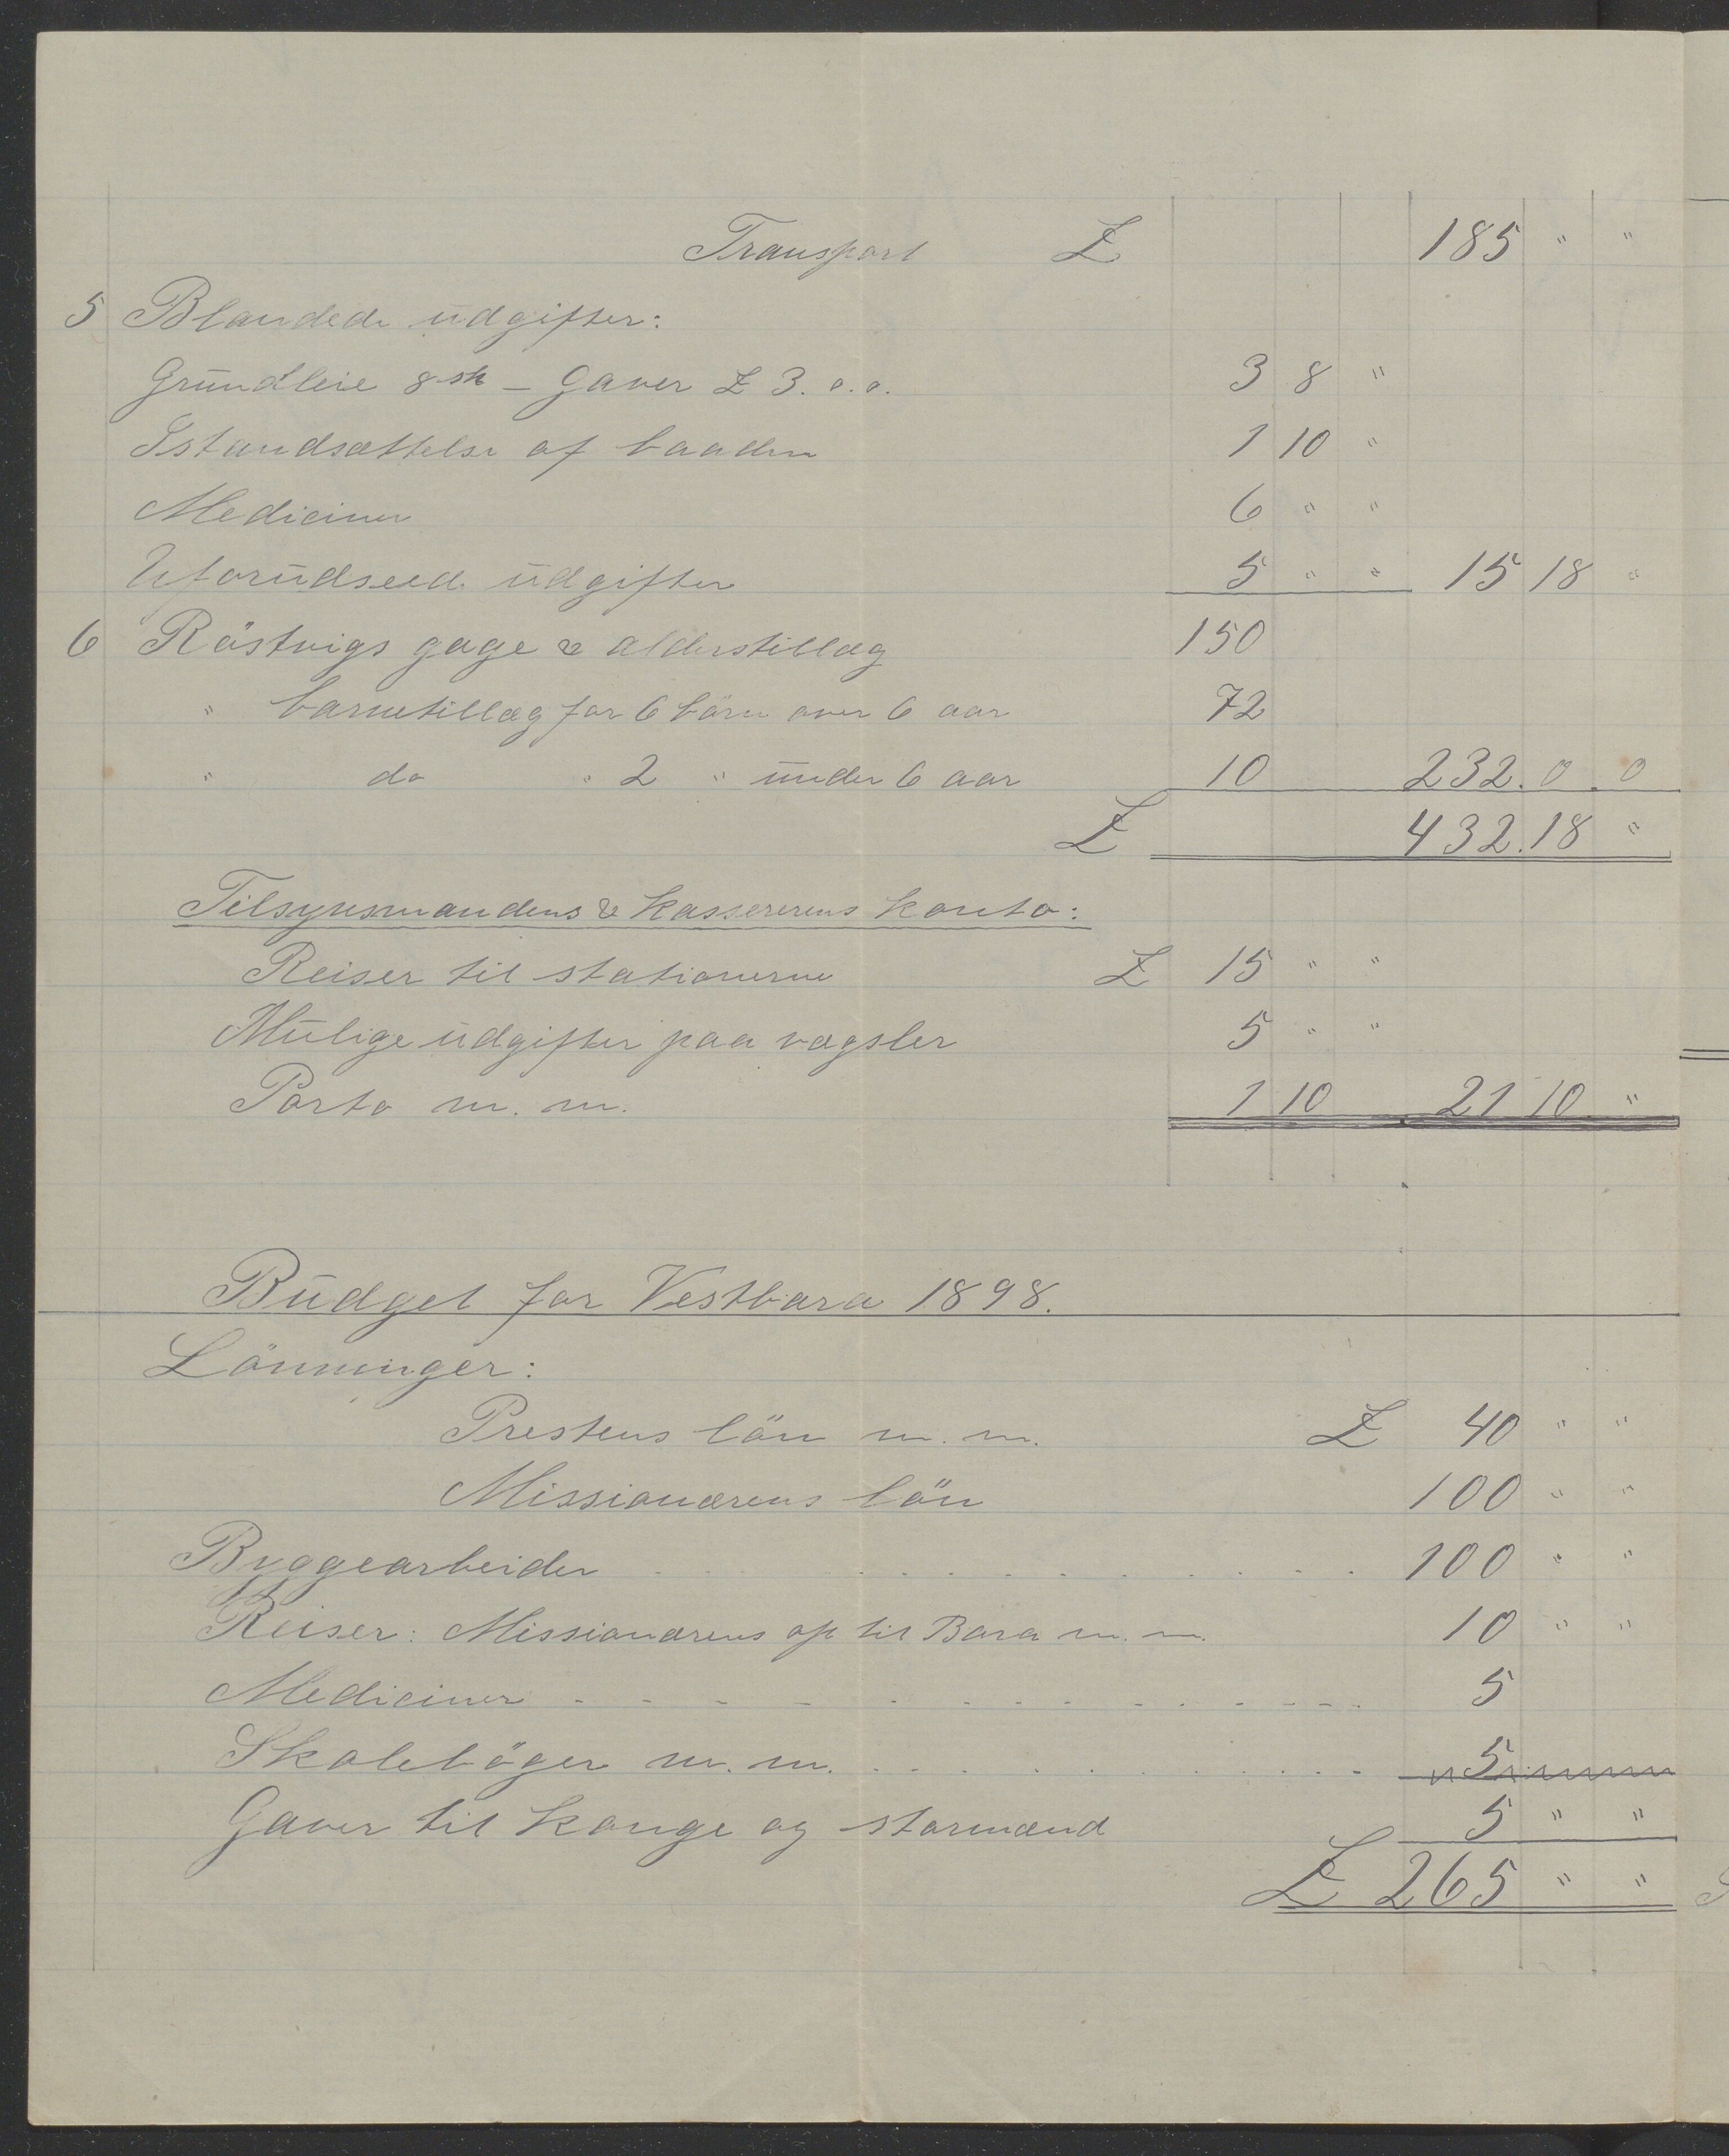 Transport £ 185 " "
5 Blandede udgifter:
Grundleie 8 sh – Gaver £ 3. 0. 0. 3 8 "
Istandsættelse af baaden 1 10 "
Mediciner 6 " "
Uforudseede udgifter 5 " " 15 18 "
6 Röstvigs gage & alderstillæg 150
" barnetillæg for 6 börn over 6 aar 72
" do " 2 " under 6 aar 10 232. 0. 0
£ 432. 18 "
Tilsynsmandens & Kassererens Konto:
Reiser til stationerne £ 15 " "
Mulige udgifter paa vægsler 5 " "
Porto m. m. 1 10 21 10 "
Budget for Vestbara 1898.
Lönninger:
Prestens lön m. m. £ 40 " "
Missionærens lön 100 " "
Byggearbeider 100 " "
Reiser: Missionærens op til Bara m. m. 10 " "
Mediciner 5
Skoleböger m. m. 5
Gaver til Konge og stormænd 5 " "
£ 265 " "